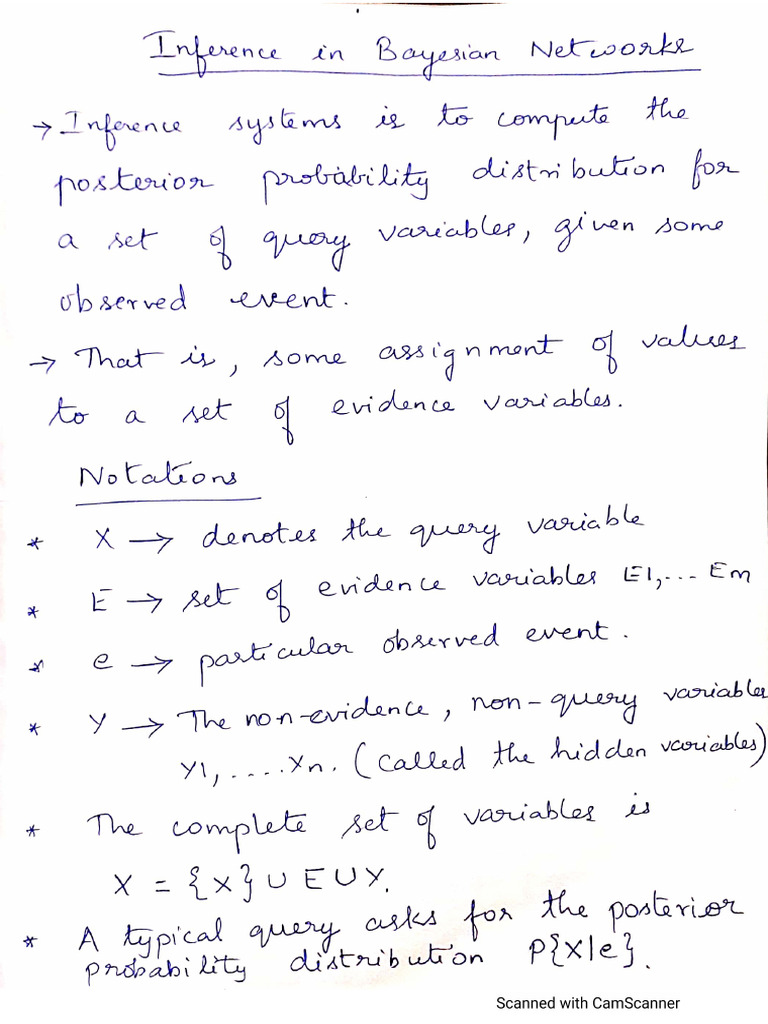 Inference in Bayesian Networks
→ Inference systems is to compute the
posterior probability distribution for
a set of query variables, given some
observed event.
→ That is, some assignment of values
to a set of evidence variables.
Notations
* X → denotes the query variable
* E → set of evidence variables E1,... Em
* e → particular observed event.
* Y → The non-evidence, non-query variables
Y1,....Yn. (called the hidden variables)
* The complete set of variables is
X = {X} U E U Y.
* A typical query asks for the posterior
probability distribution P{X|e}.
Scanned with CamScanner